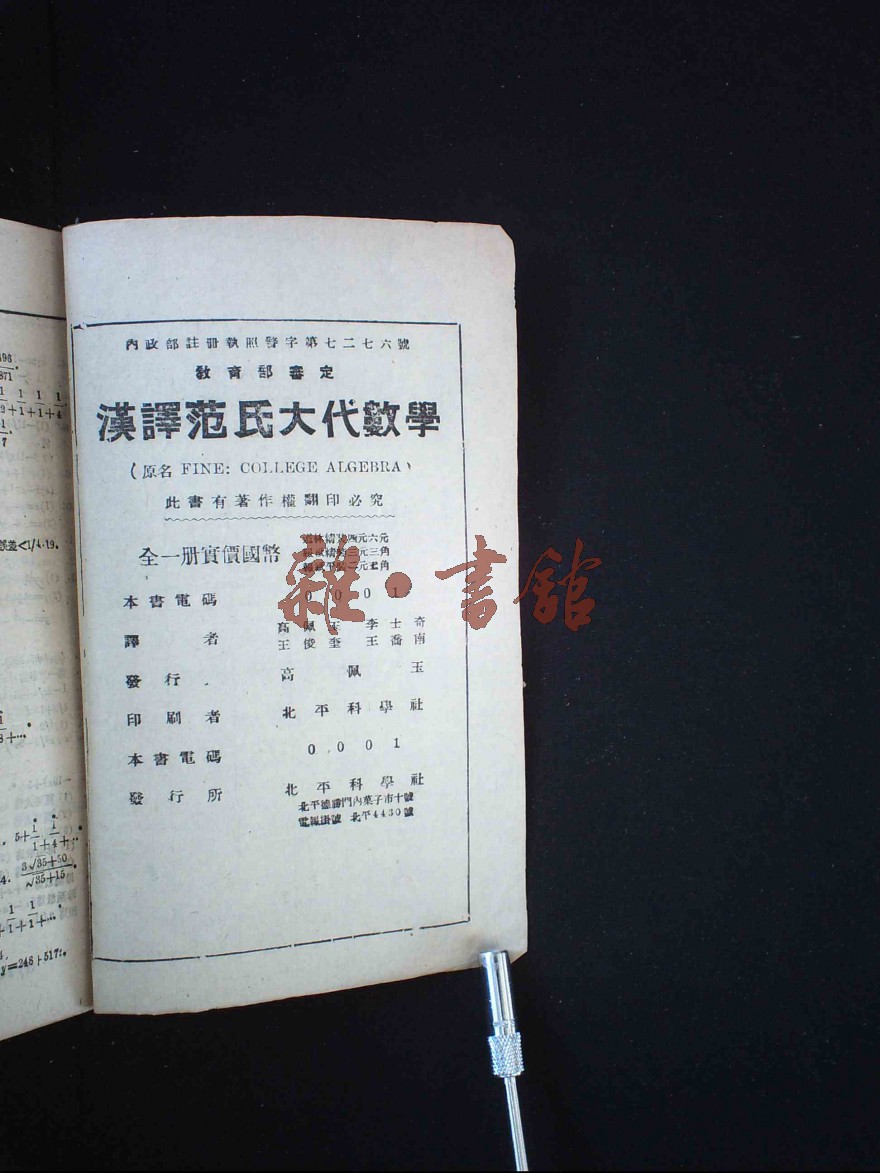 內政部註冊執照警字第七二七六號
教育部審定
漢譯范氏大代數學
(原名 FINE: COLLEGE ALGEBRA)
此書有著作權翻印必究
全一册實價國幣
四元六元
三元三角
二元五角
本書電碼 0 0 0 1
譯者 高佩玉 李士奇
王俊奎 王喬南
發行 高佩玉
印刷者 北平科學社
本書電碼 0 0 0 1
發行所 北平科學社
北平德勝門內菓子市十號
電報掛號 北平4430號
雜·書館
誤差<1/4·19.
5+
3√35+50
√35+15
y=246+517